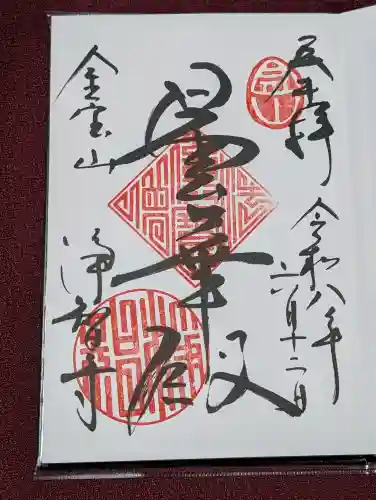 奉拝
令和八年
六月十二日
曇華殿
金宝山
浄智寺